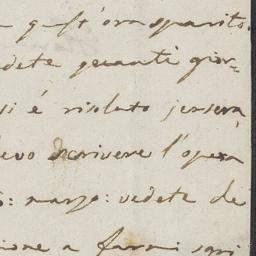 quest'ora sparito.
dete quanti gior=
si é risoluto jersera
evo scrivere l'opera
: marzo: vedete de
ione a farmi